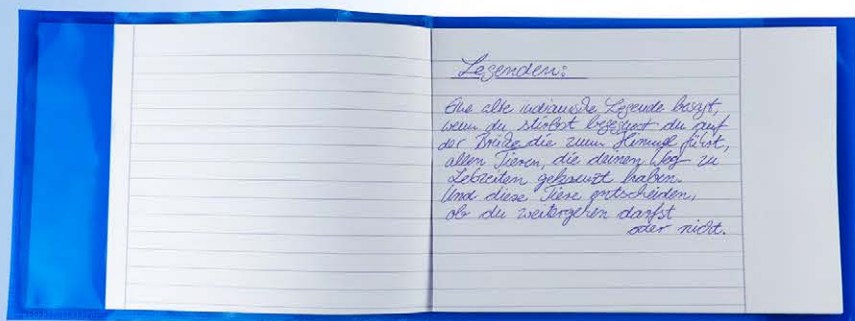 Legenden:
Eine alte indianische Legende besagt,
wenn du stirbst begegnest du auf
der Brücke die zum Himmel führt,
allen Tieren, die deinen Weg zu
Lebzeiten gekreuzt haben.
Und diese Tiere entscheiden,
ob du weitergehen darfst
oder nicht.